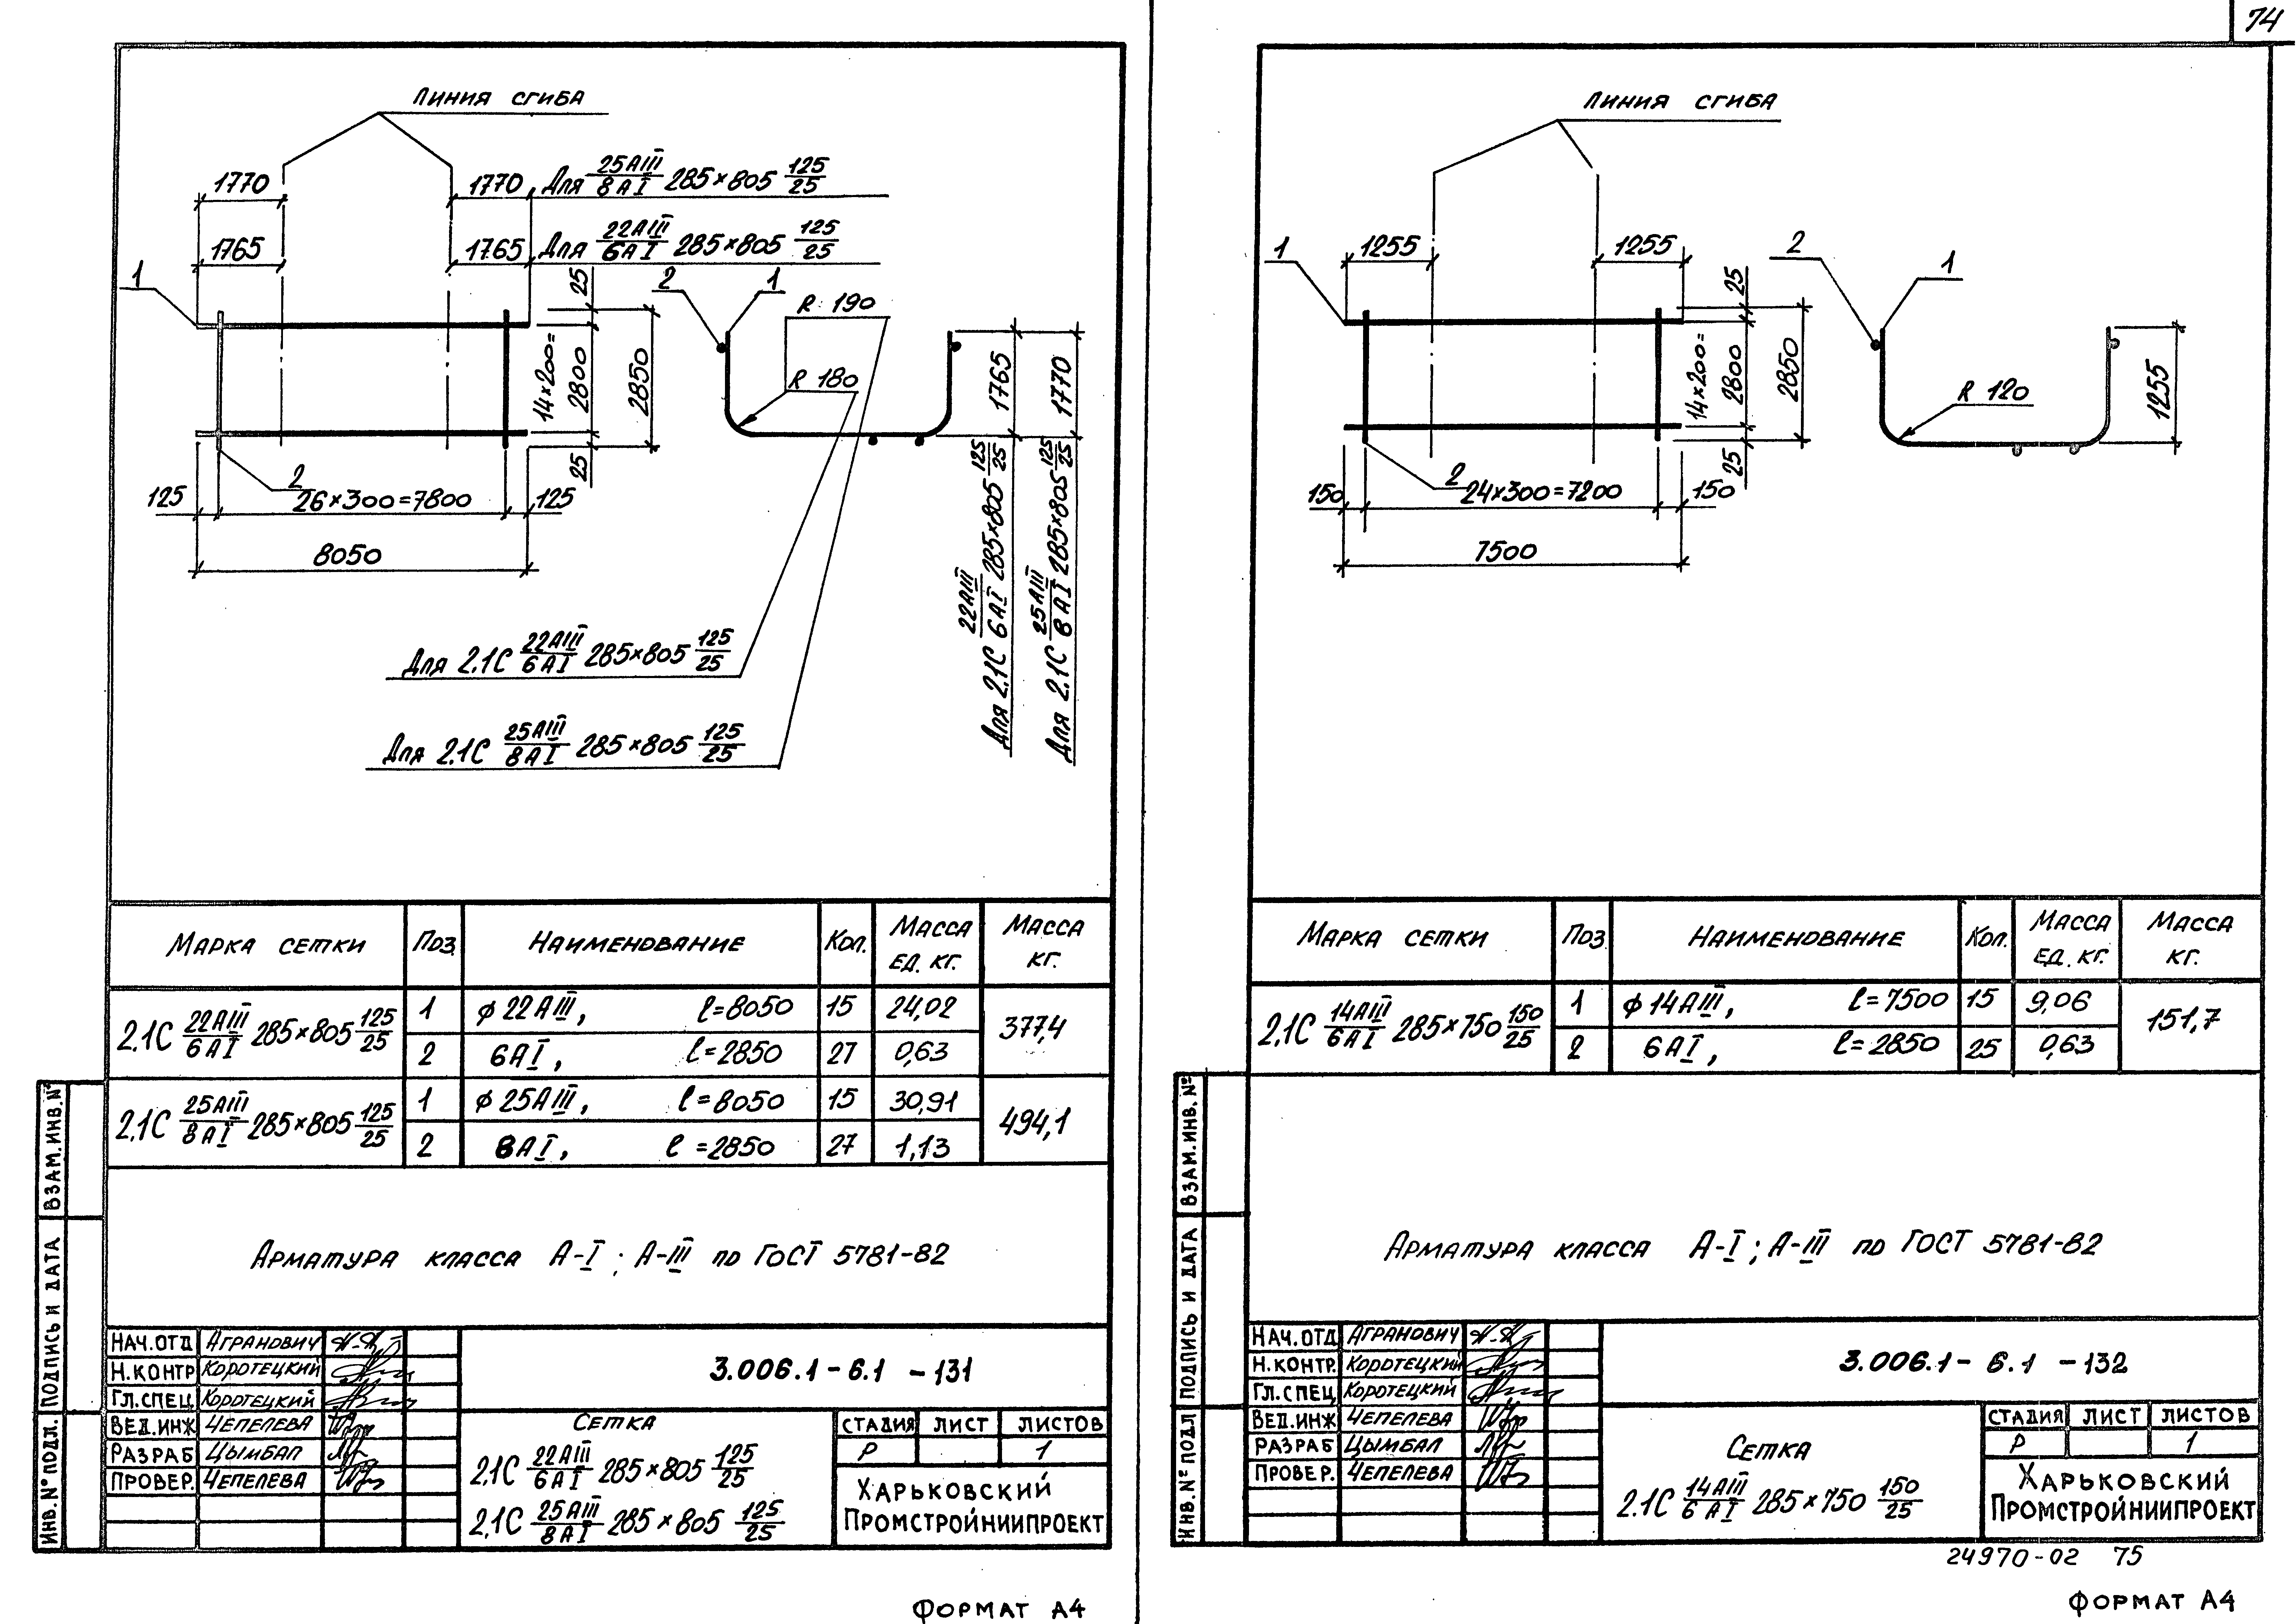 74
Линия сгиба
1770 1770 Для 25АIII/8АI 285×805 125/25
1765 1765 Для 22АIII/6АI 285×805 125/25
1
2 1
R 190
R 180
25
14×200=
2800
25
2850
1765
1770
2
125 26×300=7800 125
8050
Для 2.1С 22АIII/6АI 285×805 125/25
Для 2.1С 25АIII/8АI 285×805 125/25
Для 2.1С 22АIII/6АI 285×805 125/25
Для 2.1С 25АIII/8АI 285×805 125/25
Марка сетки Поз. Наименование Кол. Масса ед. кг. Масса кг.
2.1С 22АIII/6АI 285×805 125/25 1 ϕ22АIII, ℓ=8050 15 24,02 377,4
2 6АI, ℓ=2850 27 0,63
2.1С 25АIII/8АI 285×805 125/25 1 ϕ25АIII, ℓ=8050 15 30,91 494,1
2 8АI, ℓ=2850 27 1,13
Арматура класса А-I; А-III по ГОСТ 5781-82
Взам. инв. №
Подпись и дата
Инв. № подл.
Нач. отд Агранович
Н. контр Коротецкий
Гл. спец Коротецкий
Вед. инж Чепелева
Разраб Цымбал
Провер. Чепелева
3.006.1-6.1 -131
Сетка
2.1С 22АIII/6АI 285×805 125/25
2.1С 25АIII/8АI 285×805 125/25
Стадия Лист Листов
Р 1
Харьковский
Промстройниипроект
Формат А4
Линия сгиба
1 1255 1255
2 1
25
14×200=
2800
25
2850
R 120
1255
2
150 24×300=7200 150
7500
Марка сетки Поз Наименование Кол. Масса ед. кг. Масса кг.
2.1С 14АIII/6АI 285×750 150/25 1 ϕ14АIII, ℓ=7500 15 9,06 151,7
2 6АI, ℓ=2850 25 0,63
Арматура класса А-I; А-III по ГОСТ 5781-82
Взам. инв. №
Подпись и дата
Инв. № подл
Нач. отд Агранович
Н. контр. Коротецкий
Гл. спец Коротецкий
Вед. инж Чепелева
Разраб Цымбал
Провер. Чепелева
3.006.1-6.1 -132
Сетка
2.1С 14АIII/6АI 285×750 150/25
Стадия Лист Листов
Р 1
Харьковский
Промстройниипроект
24970-02 75
Формат А4